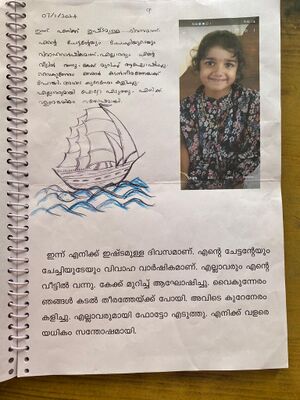 07/11/2024
ഇന്ന് എനിക്ക് ഇഷ്ടമുള്ള ദിവസമാണ്.
എന്റെ ചേട്ടന്റേയും ചേച്ചിയുടേയും
വിവാഹവാർഷികമാണ്. എല്ലാവരും എന്റെ
വീട്ടിൽ വന്നു. കേക്ക് മുറിച്ച് ആഘോഷിച്ചു.
വൈകുന്നേരം ഞങ്ങൾ കടൽതീരത്തേക്ക്
പോയി. അവിടെ കുറേനേരം കളിച്ചു.
എല്ലാവരുമായി ഫോട്ടോ എടുത്തു. എനിക്ക്
വളരെയധികം സന്തോഷമായി.
ഇന്ന് എനിക്ക് ഇഷ്ടമുള്ള ദിവസമാണ്. എന്റെ ചേട്ടന്റേയും
ചേച്ചിയുടേയും വിവാഹ വാർഷികമാണ്. എല്ലാവരും എന്റെ
വീട്ടിൽ വന്നു. കേക്ക് മുറിച്ച് ആഘോഷിച്ചു. വൈകുന്നേരം
ഞങ്ങൾ കടൽ തീരത്തേയ്ക്ക് പോയി. അവിടെ കുറേനേരം
കളിച്ചു. എല്ലാവരുമായി ഫോട്ടോ എടുത്തു. എനിക്ക് വളരെ
യധികം സന്തോഷമായി.